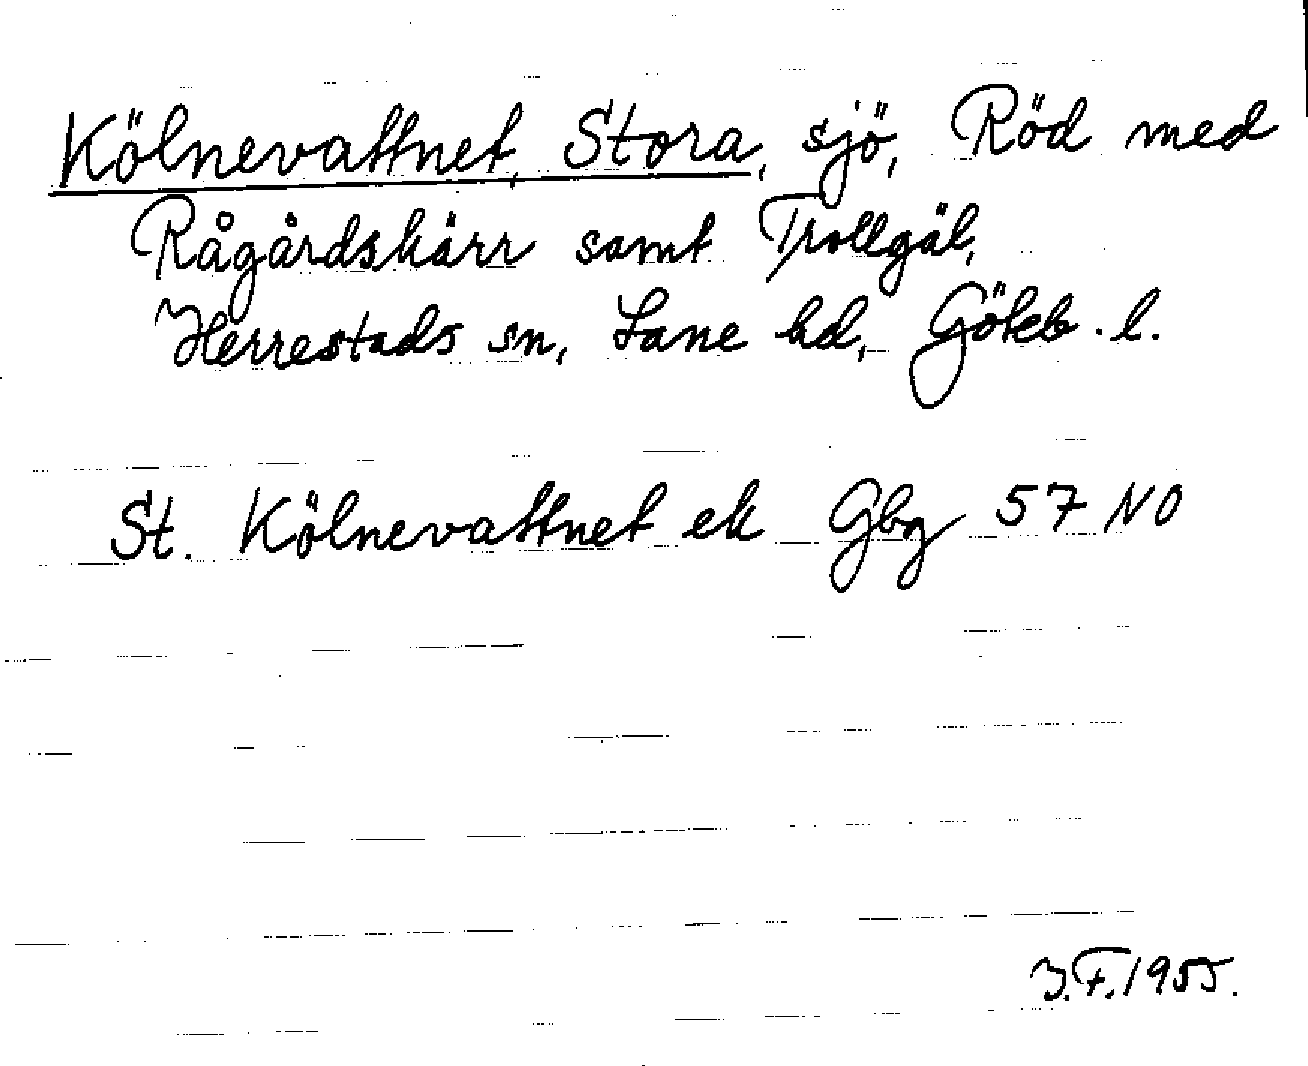 Kölnevattnet, Stora, sjö, Röd med
Rågårdskärr samt Trollgäl,
Herrestads sn, Lane hd, Göteb. l.
St. Kölnevattnet ek Gbg 57 NO
J.F. 1955.